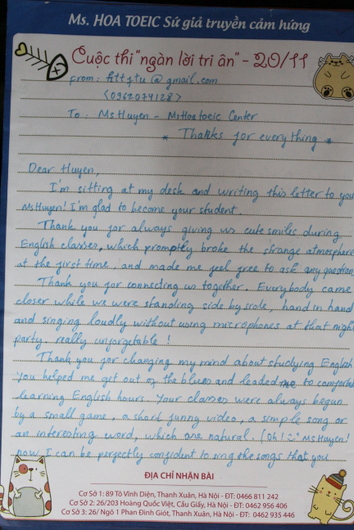 Ms. HOA TOEIC Sứ giả truyền cảm hứng
Cuộc thi "ngàn lời tri ân" - 20/11
From: httztu@gmail.com
<0962074128>
To: Ms Huyen - MsHoatoeic Center
* Thanks for everything *
Dear Huyen,
I'm sitting at my desk and writing this letter to you
MsHuyen! I'm glad to become your student.
Thank you for always giving us cute smiles during
English classes, which promptly broke the strange atmosphere
at the first time, and made me feel free to ask any question
Thank you for connecting us together. Everybody came
closer while we were standing side by side, hand in hand
and singing loudly without using microphones at that night
party. really unforgetable!
Thank you for changing my mind about studying English
You helped me get out of the blues and leaded me to
learning English hours. Your classes were always begun
by a small game, a short funny video, a simple song or
an interesting word, which are natural. (Oh! Ms Huyen!
now I can be perfectly confident to sing the songs that you
ĐỊA CHỈ NHẬN BÀI
Cơ Sở 1: 89 Tô Vĩnh Diện, Thanh Xuân, Hà Nội - ĐT: 0466 811 242
Cơ Sở 2: 26/203 Hoàng Quốc Việt, Cầu Giấy, Hà Nội - ĐT: 0462 956 406
Cơ Sở 3: 26/ Ngõ 1 Phan Đình Giót, Thanh Xuân, Hà Nội - ĐT: 0462 935 446